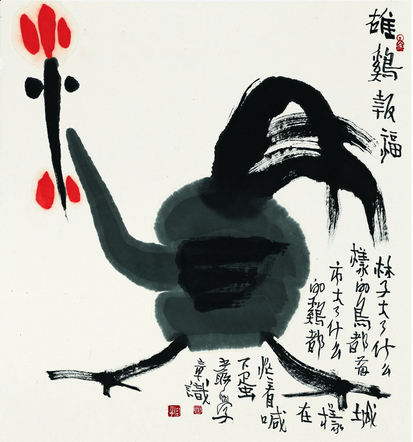 雄鷄報福
林子大了什么
樣的鳥都有城
市大了什么樣
的鷄都在
忙着喊
下蛋
學
章識